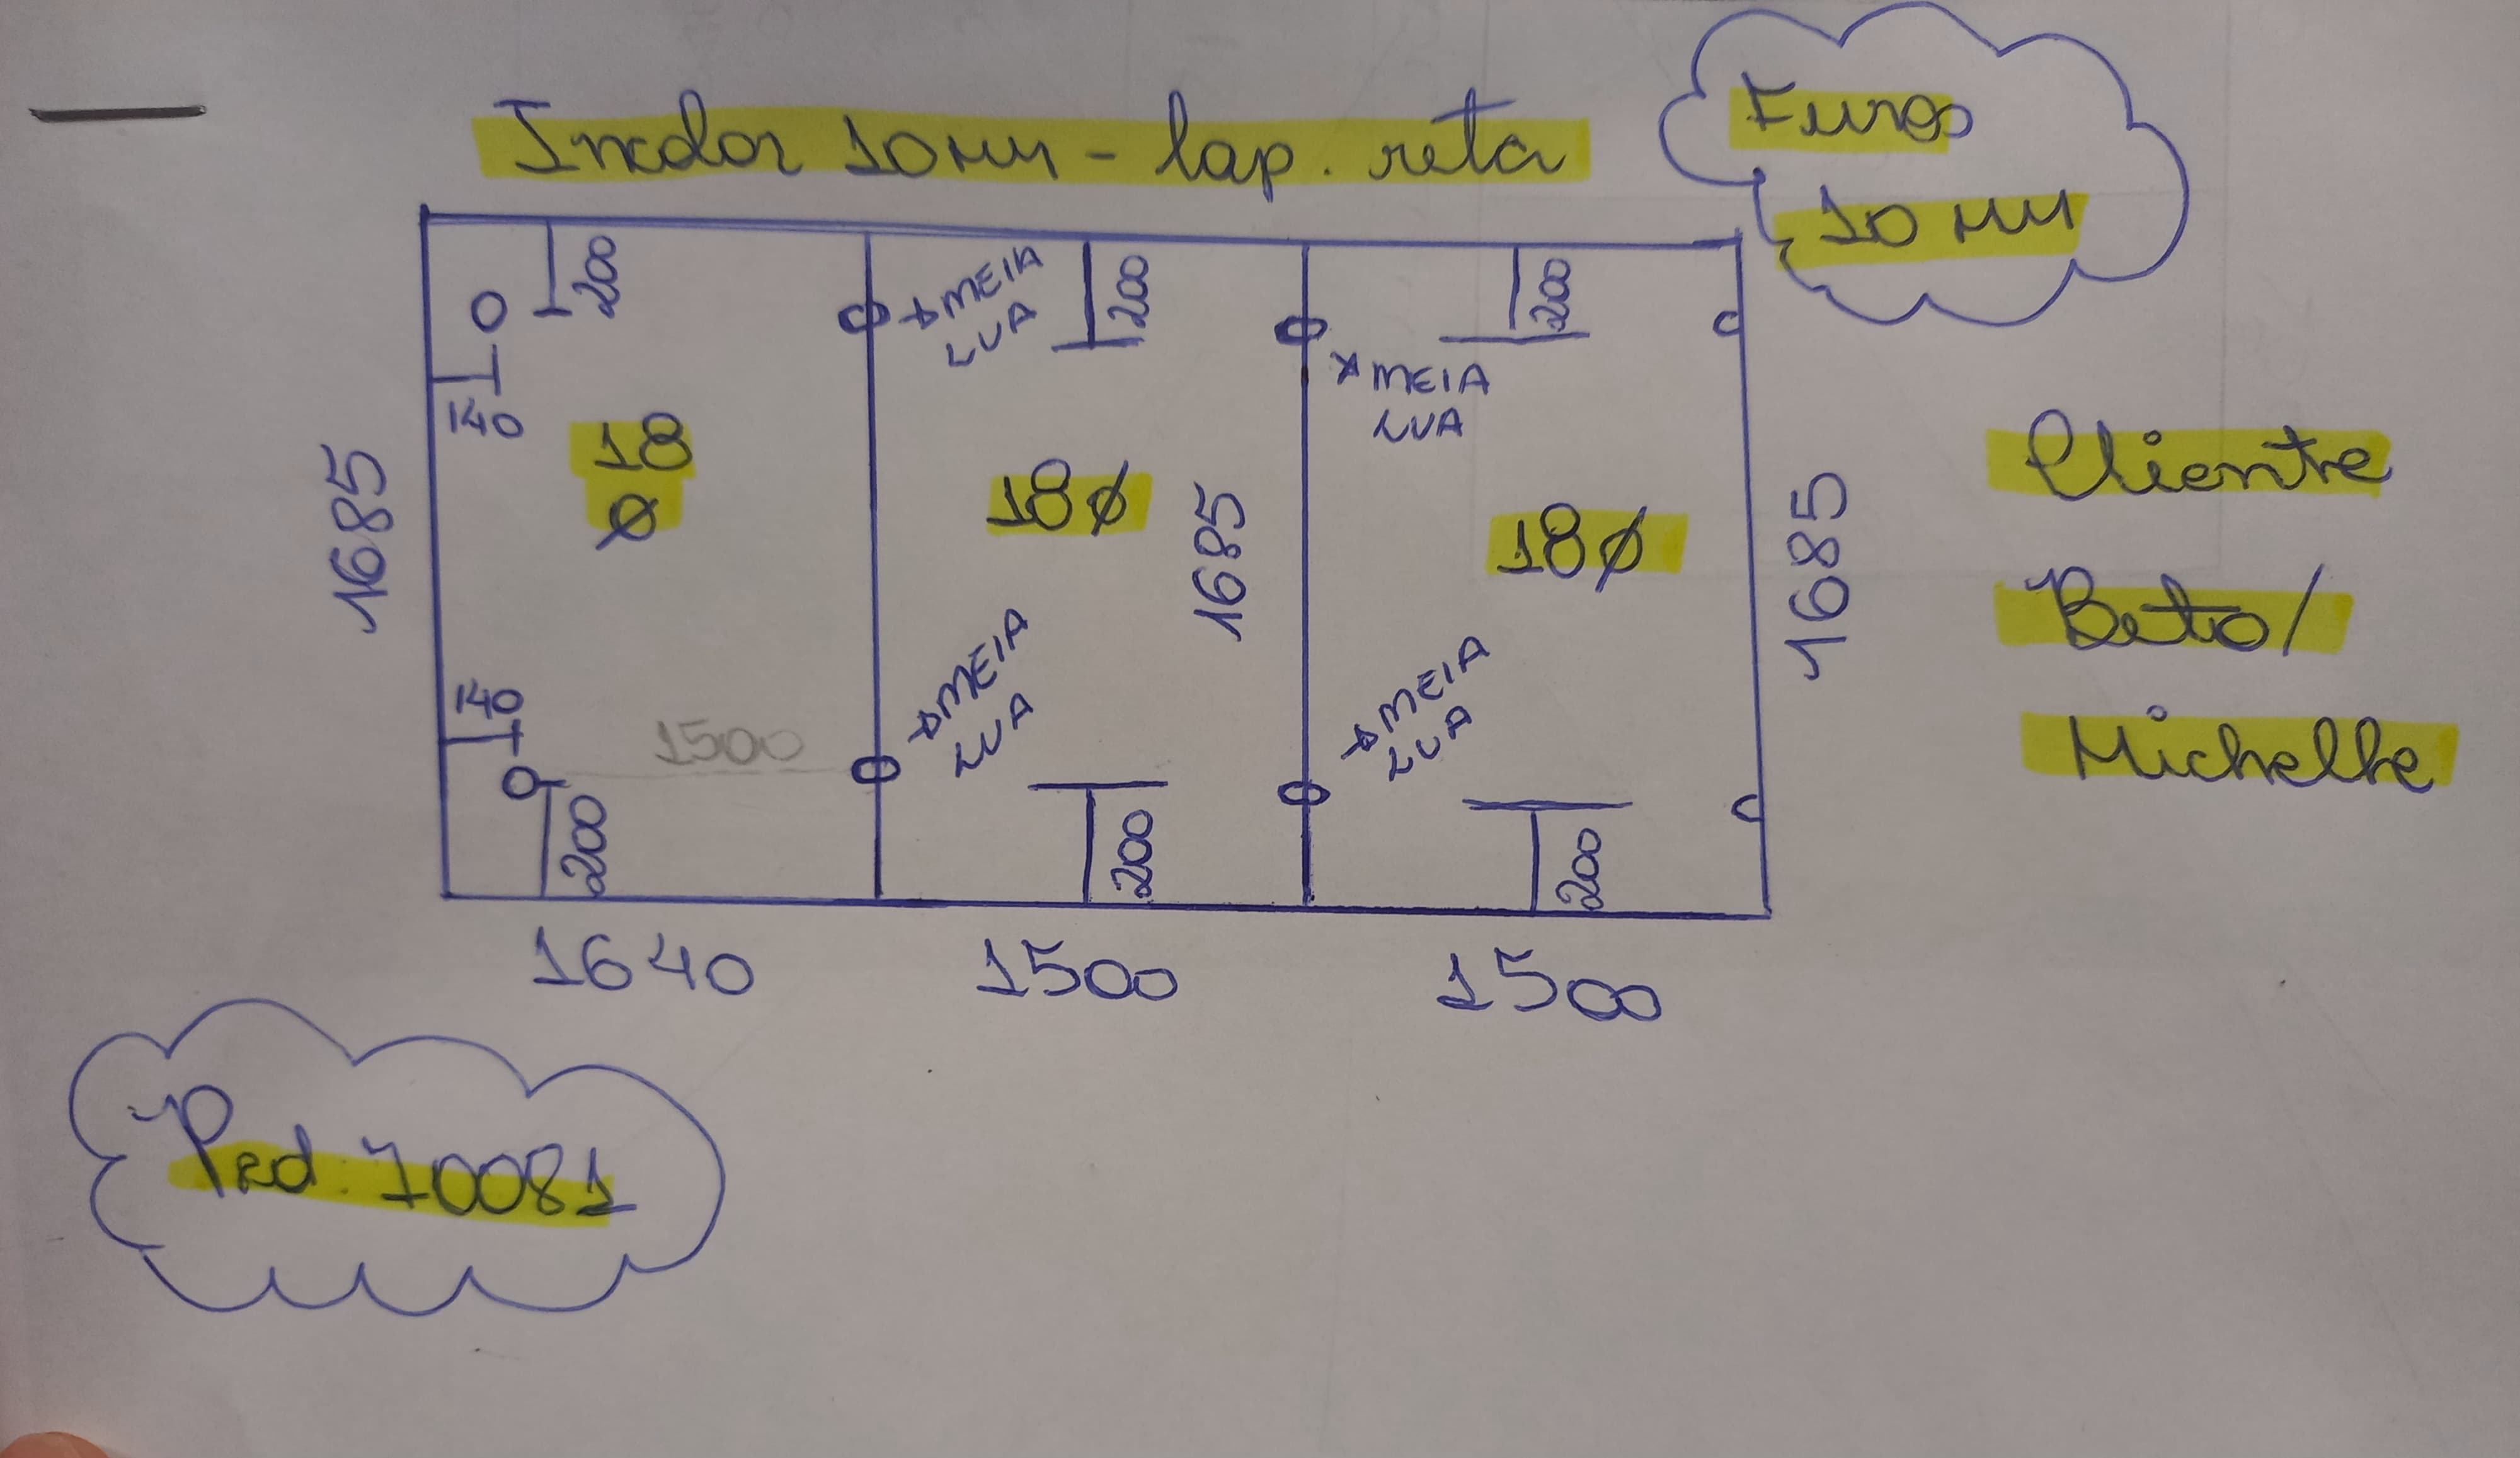 Incolor 10MM - lap. reta
Furos
10 MM
200
MEIA
LUA
200
MEIA
LUA
200
140
18
Ø
18Ø
18Ø
1685
1685
1685
Cliente
Beto/
Michelle
140
1500
MEIA
LUA
MEIA
LUA
200
200
200
1640
1500
1500
Ped. 70081